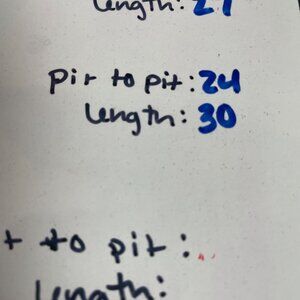 length: 27
pit to pit: 24
length: 30
t to pit:
length: